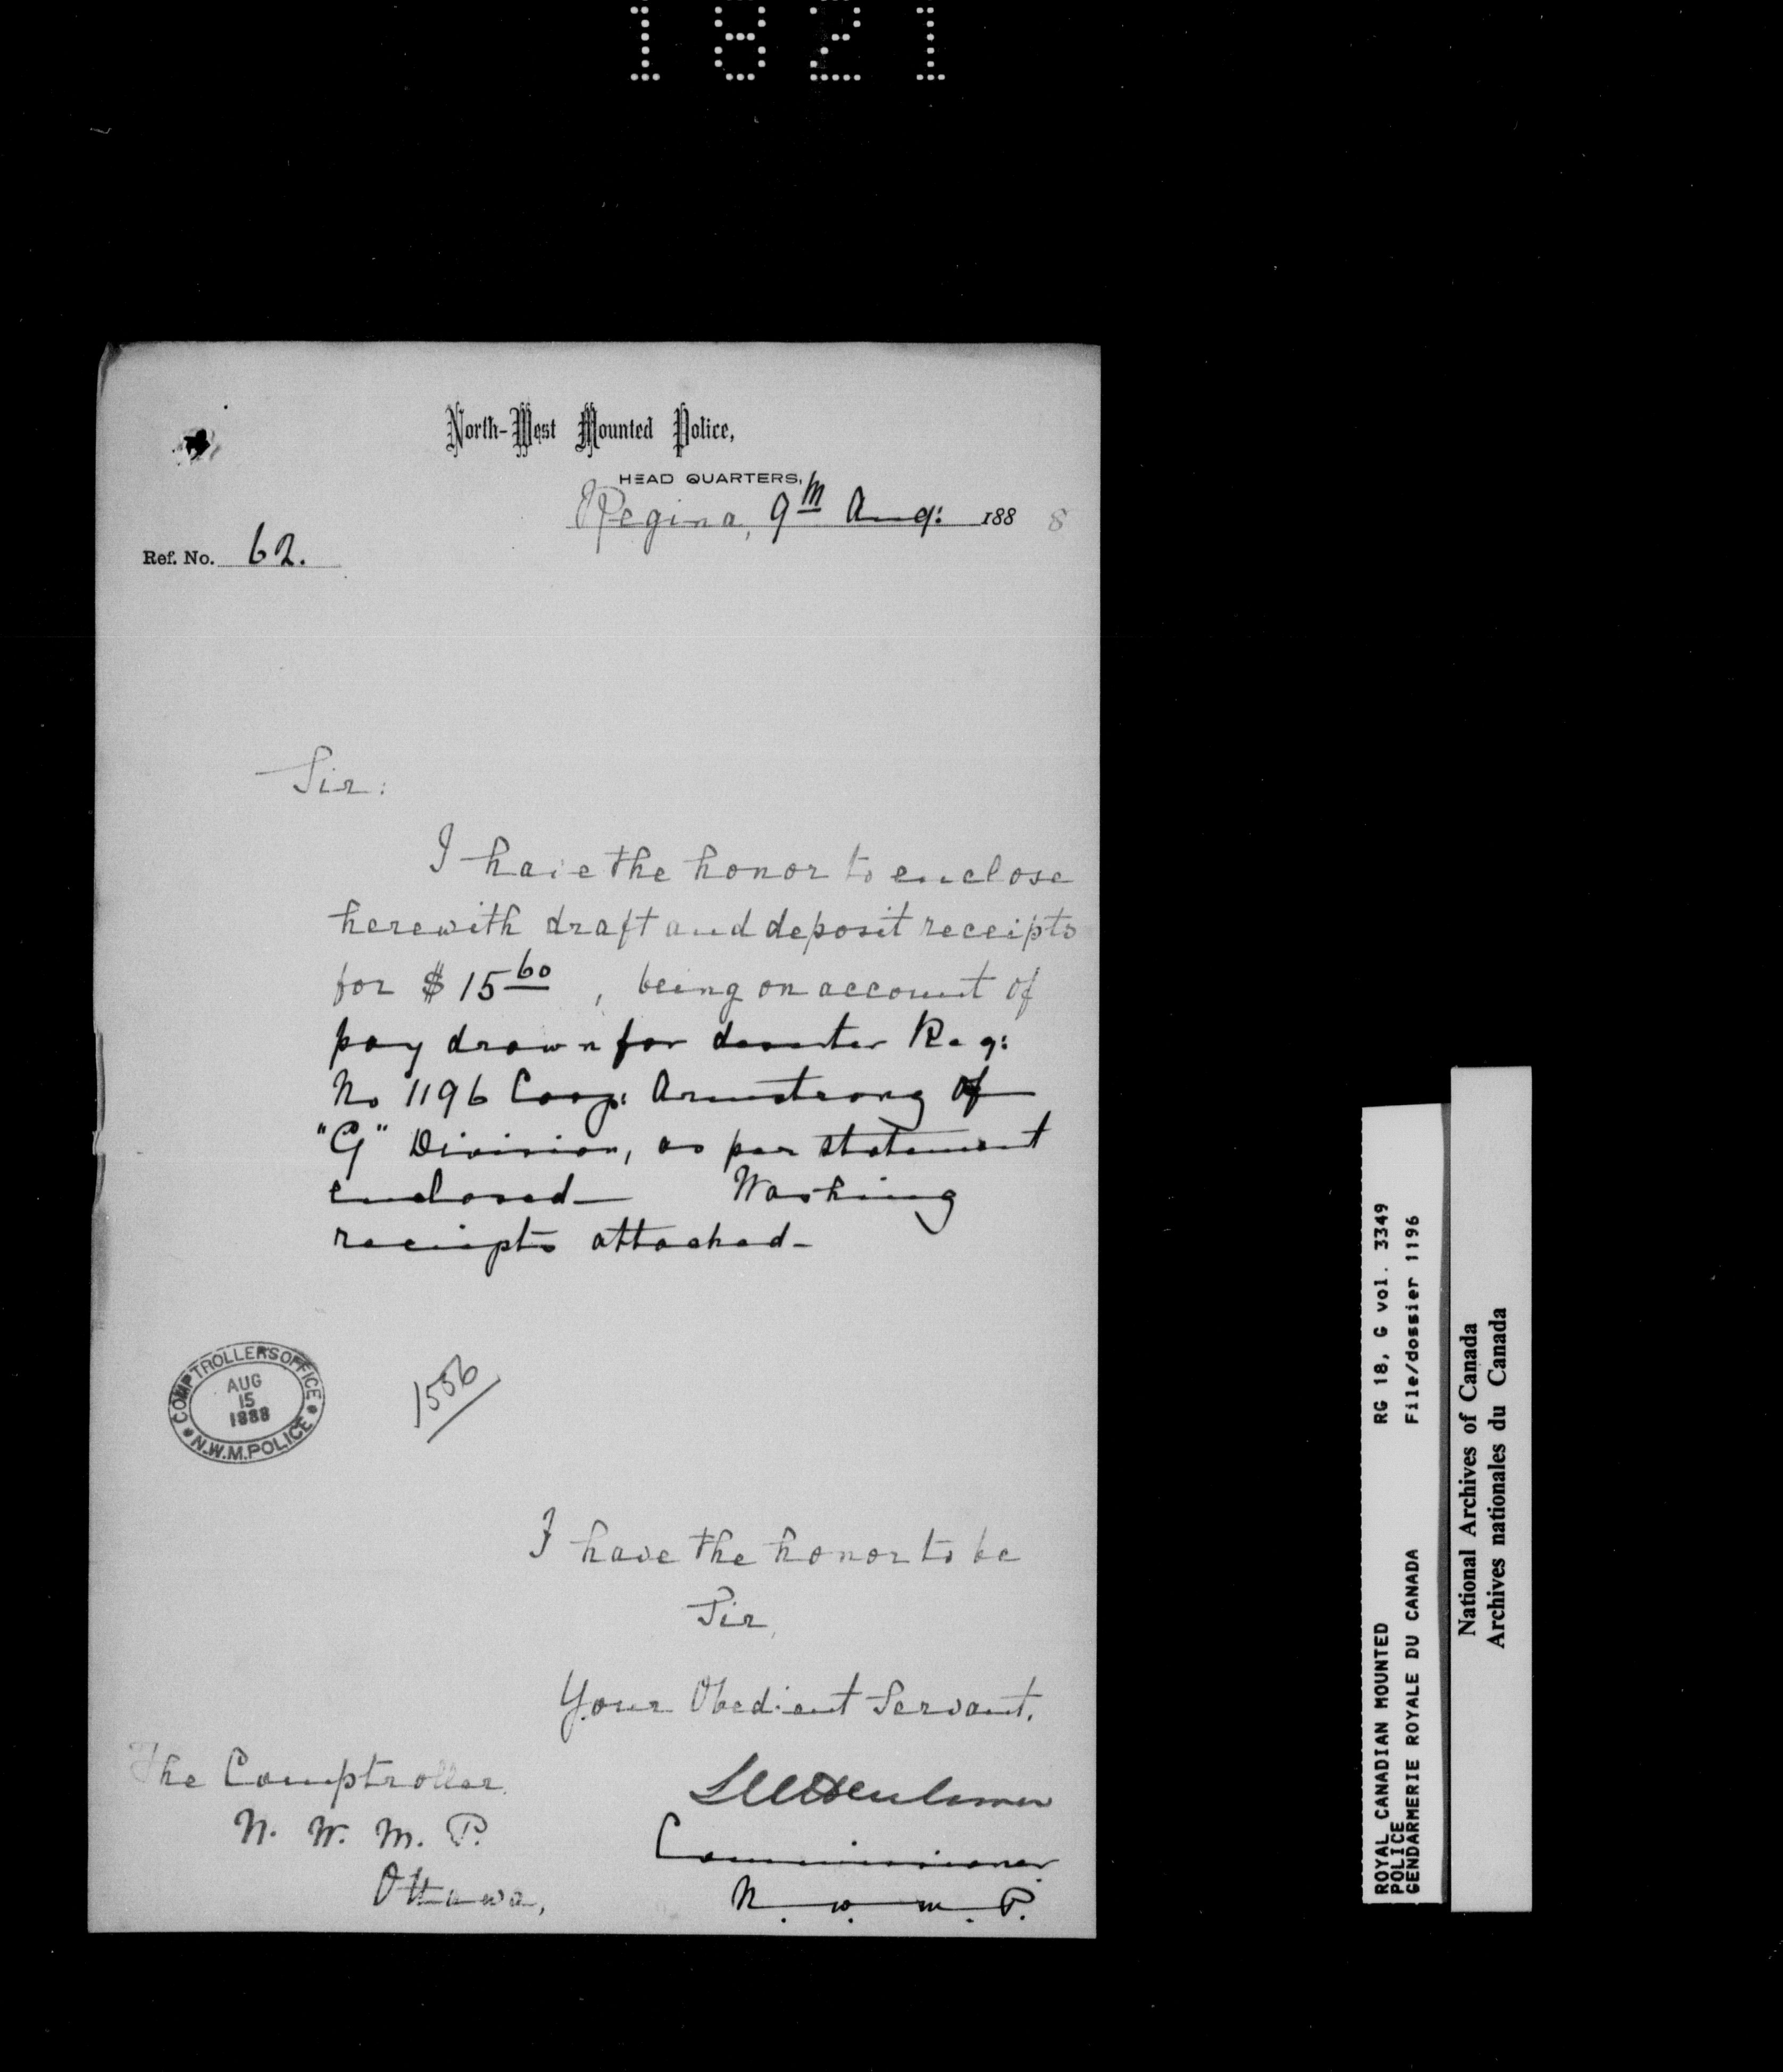 1821
North-West Mounted Police,
HEAD QUARTERS,
Regina, 9th Aug: 1888
Ref. No. 62.
Sir:
I have the honor to enclose
herewith draft and deposit receipts
for $15 60, being on account of
pay drawn for deserter Reg:
No 1196 Corp: Armstrong of
"G" Division, as per statement
enclosed- Washing
receipts attached-
COMPTROLLERS OFFICE
AUG
15
1888
N.W.M. POLICE
1556
I have the honor to be
Sir,
Your Obedient Servant.
The Comptroller.
N. W. M. P.
Ottawa,
Commissioner
N. W. M. P.
ROYAL CANADIAN MOUNTED POLICE RG 18, G vol. 3349
GENDARMERIE ROYALE DU CANADA File/dossier 1196
National Archives of Canada
Archives nationales du Canada